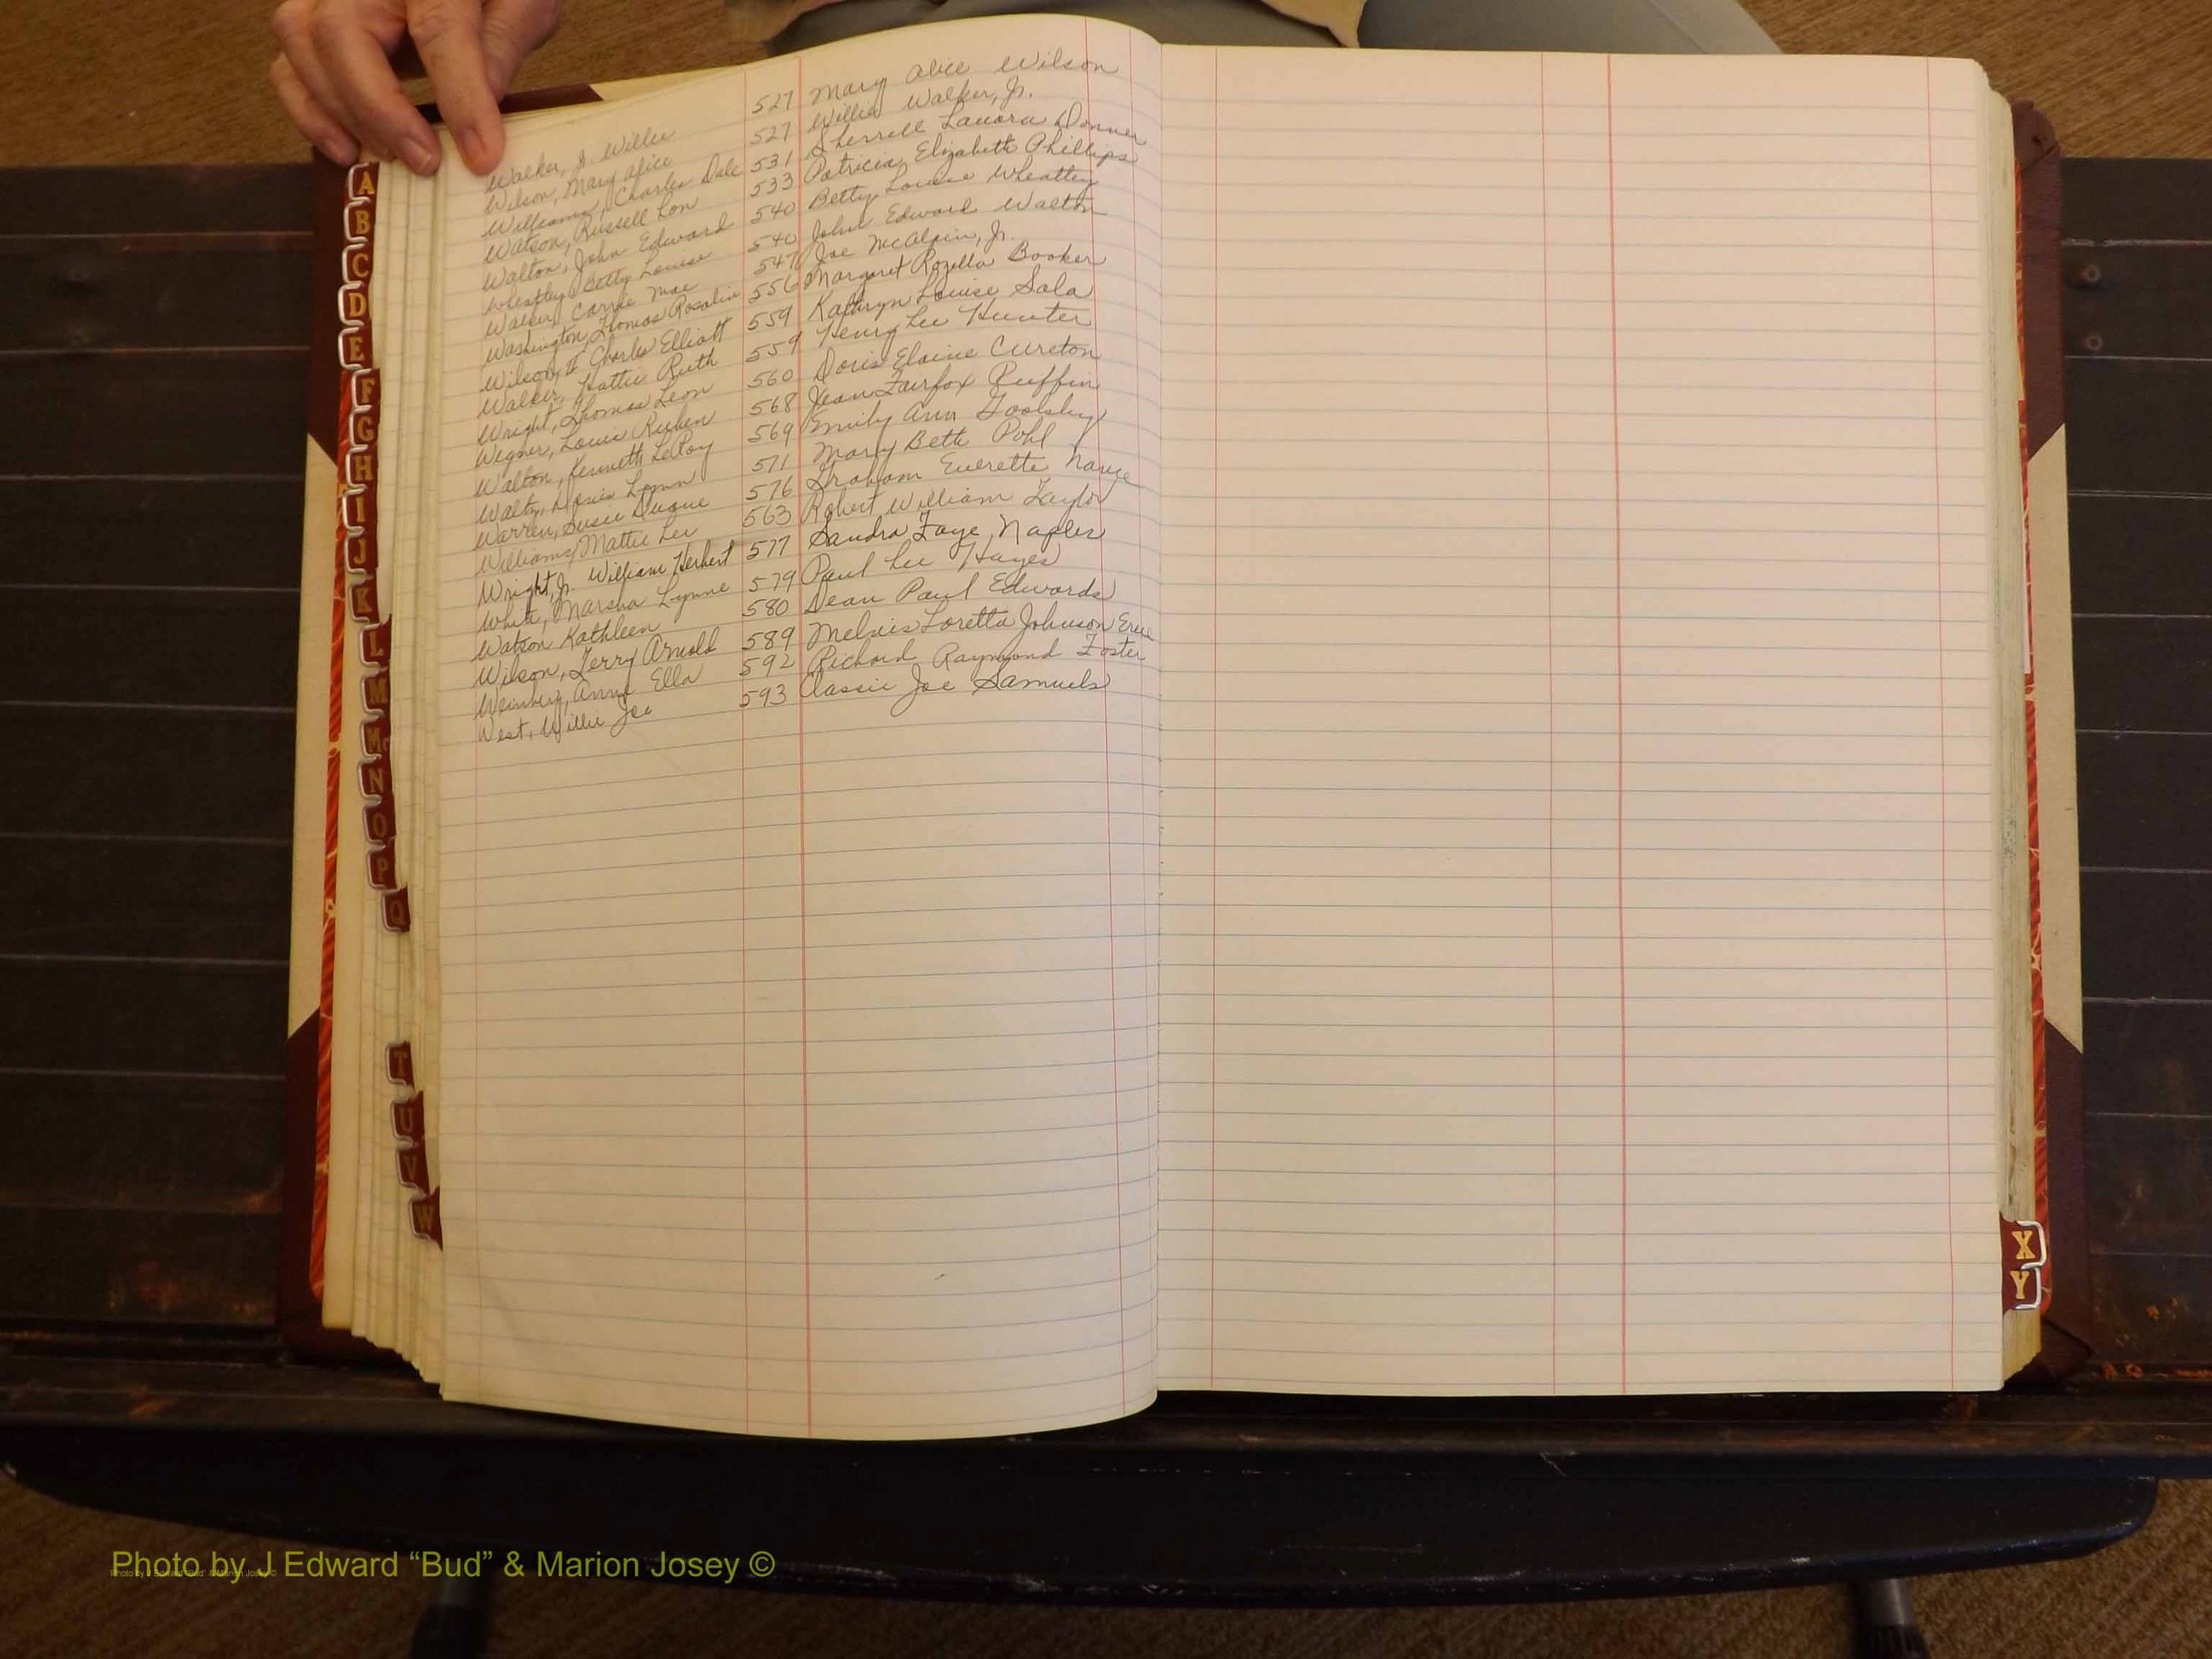 Walker, Jr. Willie 527 Mary Alice Wilson
Wilson, Mary Alice 527 Willie Walker, Jr.
Williams, Charles Dale 531 Sherrell Lavora Donner
Watson, Russell Lon 533 Patricia Elizabeth Phillips
Walton, John Edward 540 Betty Louise Wheatley
Wheatley, Betty Louise 540 John Edward Walton
Walker, Carrie Mae 547 Joe McAlpin, Jr.
Washington, Thomas Rosalin 556 Margaret Rozella Booker
Wilson, II Charles Elliott 559 Kathryn Louise Sala
Walker, Hattie Ruth 559 Henry Lee Hunter
Wright, Thomas Leon 560 Doris Elaine Cureton
Wegner, Louis Ruben 568 Jean Fairfox Ruffin
Walton, Kenneth LeRoy 569 Emily Ann Goolsby
Waltz, Lynn 571 Mary Beth Pohl
Warren, Susie Duque 576 Graham Everette Nance
Williams, Mattie Lee 563 Robert William Taylor
Wright, Jr. William Herbert 577 Sandra Faye Naples
White, Marsha Lynne 579 Paul Lee Hayes
Watson Kathleen 580 Dean Paul Edwards
Wilson, Terry Arnold 589 Loretta Johnson
Weinberg, Anne Ella 592 Richard Raymond Foster
West, Willie Joe 593 Classie Joe Samuels
A
B
C
D
E
F
G
H
I
J
K
L
M
Mc
N
O
P
Q
T
U
V
W
X
Y
Photo by J Edward “Bud” & Marion Josey ©
Photo by J Edward “Bud” & Marion Josey ©